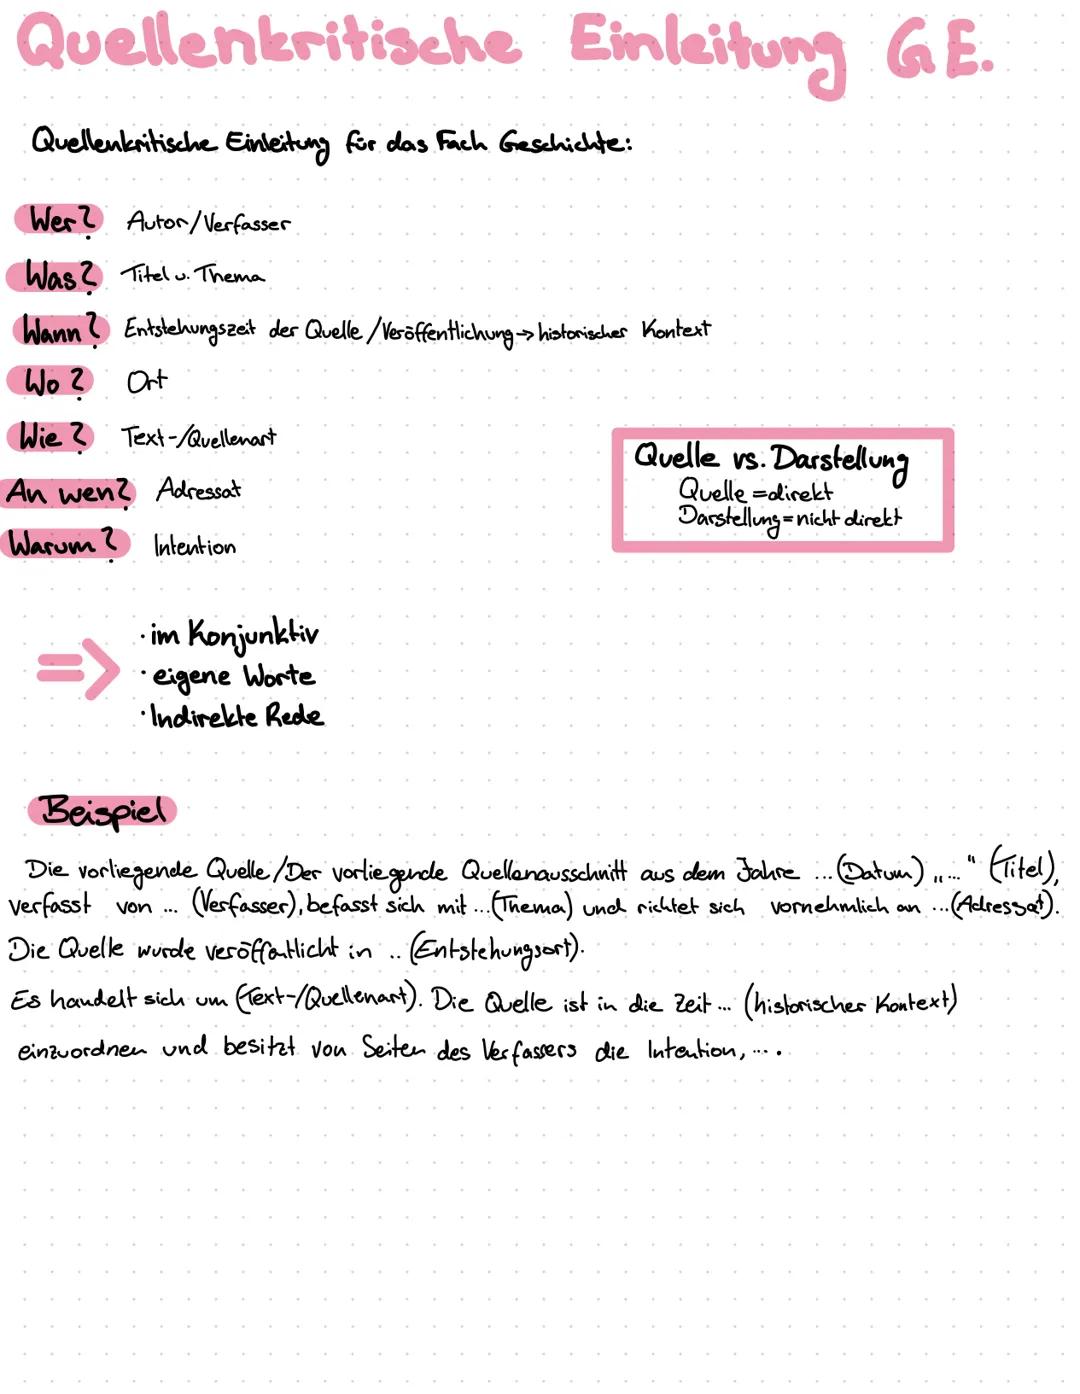 Quellenkritische Einleitung GE.
Quellenkritische Einleitung für das Fach Geschichte:
Wer? Autor/Verfasser
Was? Titel u. Thema
Wann? Entstehungszeit der Quelle/Veröffentlichung → historischer Kontext
Wo? Ort
Wie? Text-/Quellenart
An wen? Adressat
Warum? Intention
Quelle vs. Darstellung
Quelle = direkt
Darstellung = nicht direkt
=> · im Konjunktiv
· eigene Worte
· Indirekte Rede
Beispiel
Die vorliegende Quelle/Der vorliegende Quellenausschnitt aus dem Jahre ... (Datum) „..." (Titel),
verfasst von ... (Verfasser), befasst sich mit ... (Thema) und richtet sich vornehmlich an ... (Adressat).
Die Quelle wurde veröffentlicht in .. (Entstehungsort).
Es handelt sich um (Text-/Quellenart). Die Quelle ist in die Zeit ... (historischer Kontext)
einzuordnen und besitzt von Seiten des Verfassers die Intention, ... .